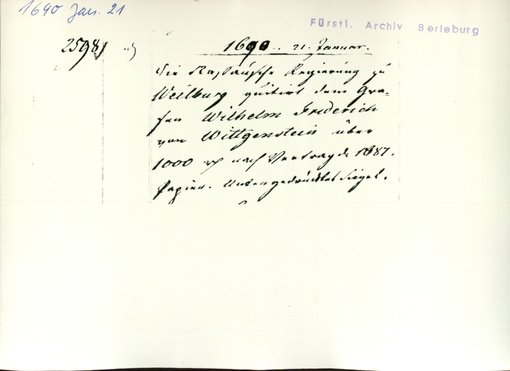 1690 Jan. 21
Fürstl. Archiv Berleburg
1690. 21. Januar.
Die Nassauische Regierung zu
Weilburg quittirt dem Gra-
fen Wilhelm Friederich
von Wittgenstein über
1000 nach Vertrag de 1687.
Papier. Unten gedrücktes Siegel.